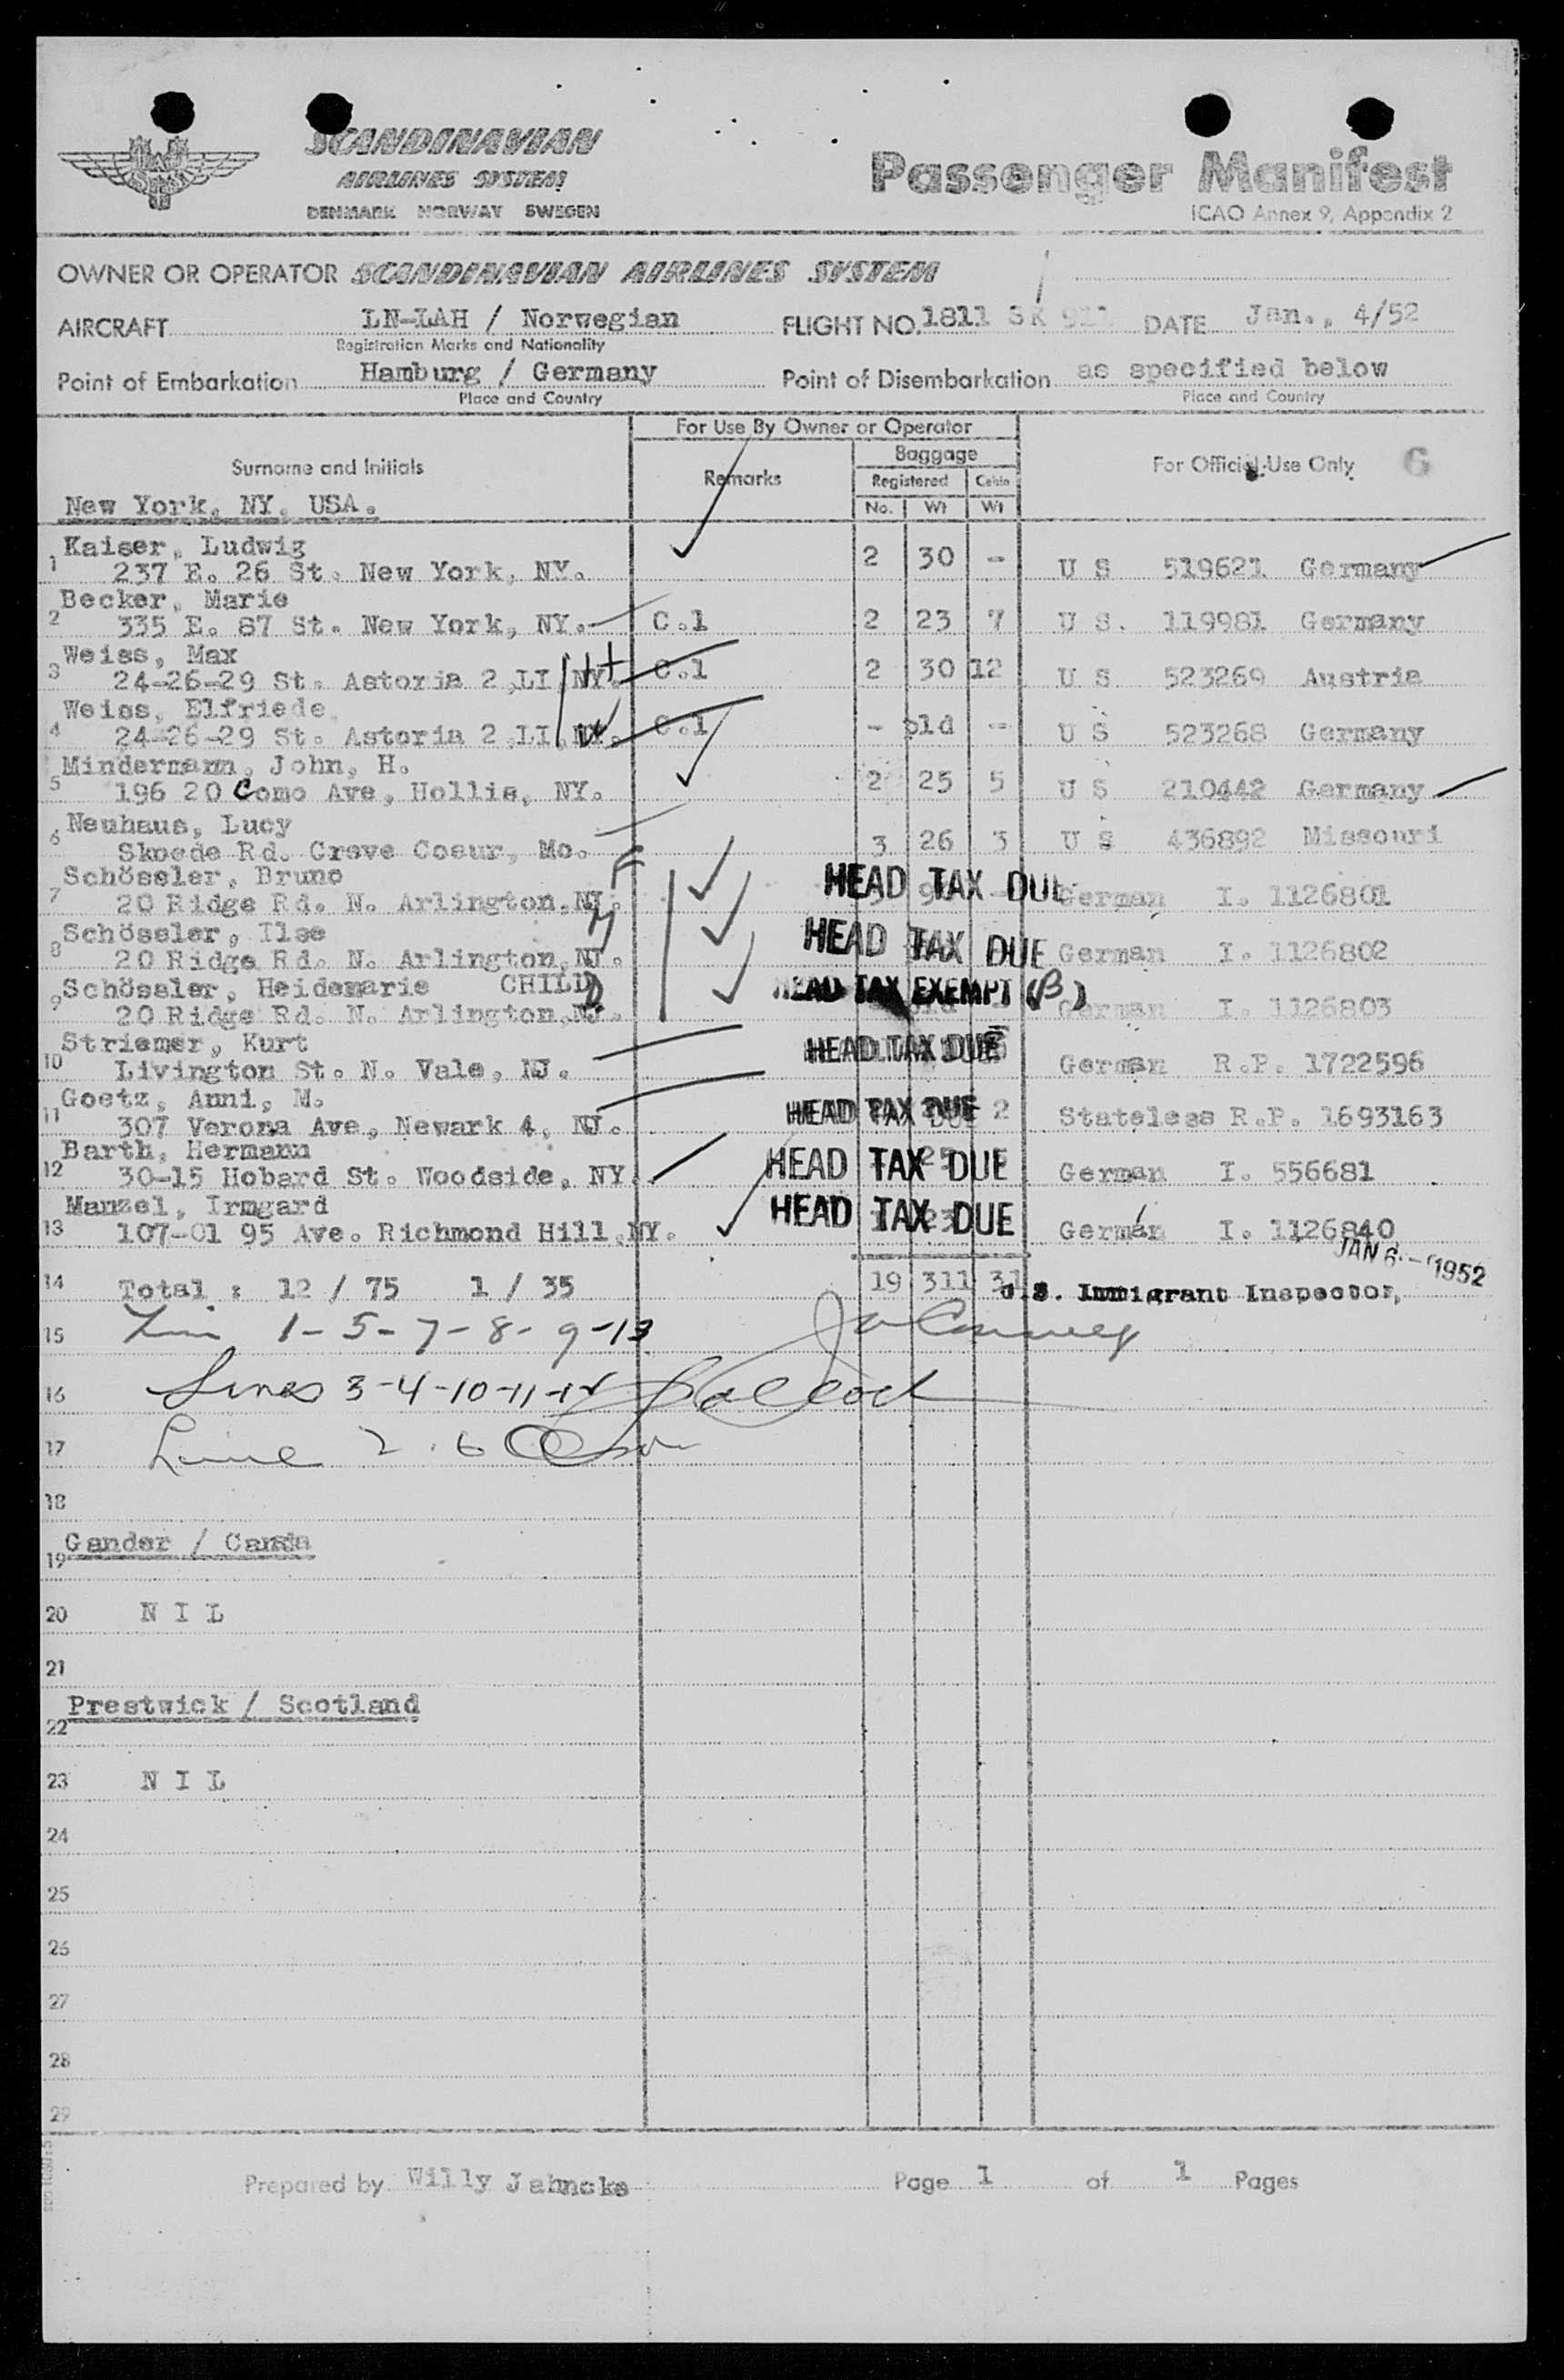 SCANDINAVIAN
AIRLINES SYSTEM
DENMARK NORWAY SWEDEN
Passenger Manifest
ICAO Annex 9, Appendix 2
OWNER OR OPERATOR SCANDINAVIAN AIRLINES SYSTEM
AIRCRAFT LN-LAH / Norwegian FLIGHT NO. 1811 SK 911 DATE Jan., 4/52
Registration Marks and Nationality
Point of Embarkation Hamburg / Germany Point of Disembarkation as specified below
Place and Country Place and Country
For Use By Owner or Operator
Surname and Initials Remarks Baggage For Official Use Only 6
Registered Cabin
New York, NY, USA. No. Wt Wt
Kaiser, Ludwig
1 237 E. 26 St. New York, NY. 2 30 - U S 519621 Germany
Becker, Marie
2 335 E. 87 St. New York, NY. C.1 2 23 7 U S. 119981 Germany
Weiss, Max
3 24-26-29 St. Astoria 2,LI,NY. C.1 2 30 12 U S 523269 Austria
Weiss, Elfriede
4 24-26-29 St. Astoria 2,LI,NY. C.1 - pld - U S 523268 Germany
Mindermann, John, H.
5 196 20 Como Ave, Hollis, NY. 2 25 5 U S 210442 Germany
Neuhaus, Lucy
6 Skoede Rd. Creve Coeur, Mo. 3 26 3 U S 436892 Missouri
Schössler, Bruno
7 20 Ridge Rd. N. Arlington,NJ. HEAD TAX DUE German I. 1126801
Schössler, Ilse
8 20 Ridge Rd. N. Arlington,NJ. HEAD TAX DUE German I. 1126802
Schössler, Heidemarie CHILD
9 20 Ridge Rd. N. Arlington,NJ. HEAD TAX EXEMPT (B) German I. 1126803
Striemer, Kurt
10 Livington St. N. Vale, NJ. HEAD TAX DUE German R.P. 1722596
Goetz, Anni, M.
11 307 Verona Ave, Newark 4, NJ. HEAD TAX DUE 2 Stateless R.P. 1693163
Barth, Hermann
12 30-15 Hobard St. Woodside, NY. HEAD TAX DUE German I. 556681
Manzel, Irmgard
13 107-01 95 Ave. Richmond Hill,NY. HEAD TAX DUE German I. 1126840
JAN 6 - 1952
14 Total : 12 / 75 1 / 35 19 311 31 U.S. Immigrant Inspector,
15 1-5-7-8-9-13
16 Lines 3-4-10-11-12
17 Line 2.6
18
Gander / Canada
19
20 N I L
21
Prestwick / Scotland
22
23 N I L
24
25
26
27
28
29
Prepared by Willy Jahncke Page 1 of 1 Pages